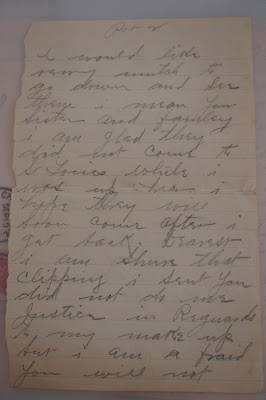 i would like
verry mutch to
go down and see
them i mean your
sister and famley
i am glad they
did not come to
St Louis while i
was up hear i
hope they will
soon come after i
get back. Dearest
i am shure that
clipping i sent you
did not do me
justice in Reguards
to my make up
but i am a fraid
you will not